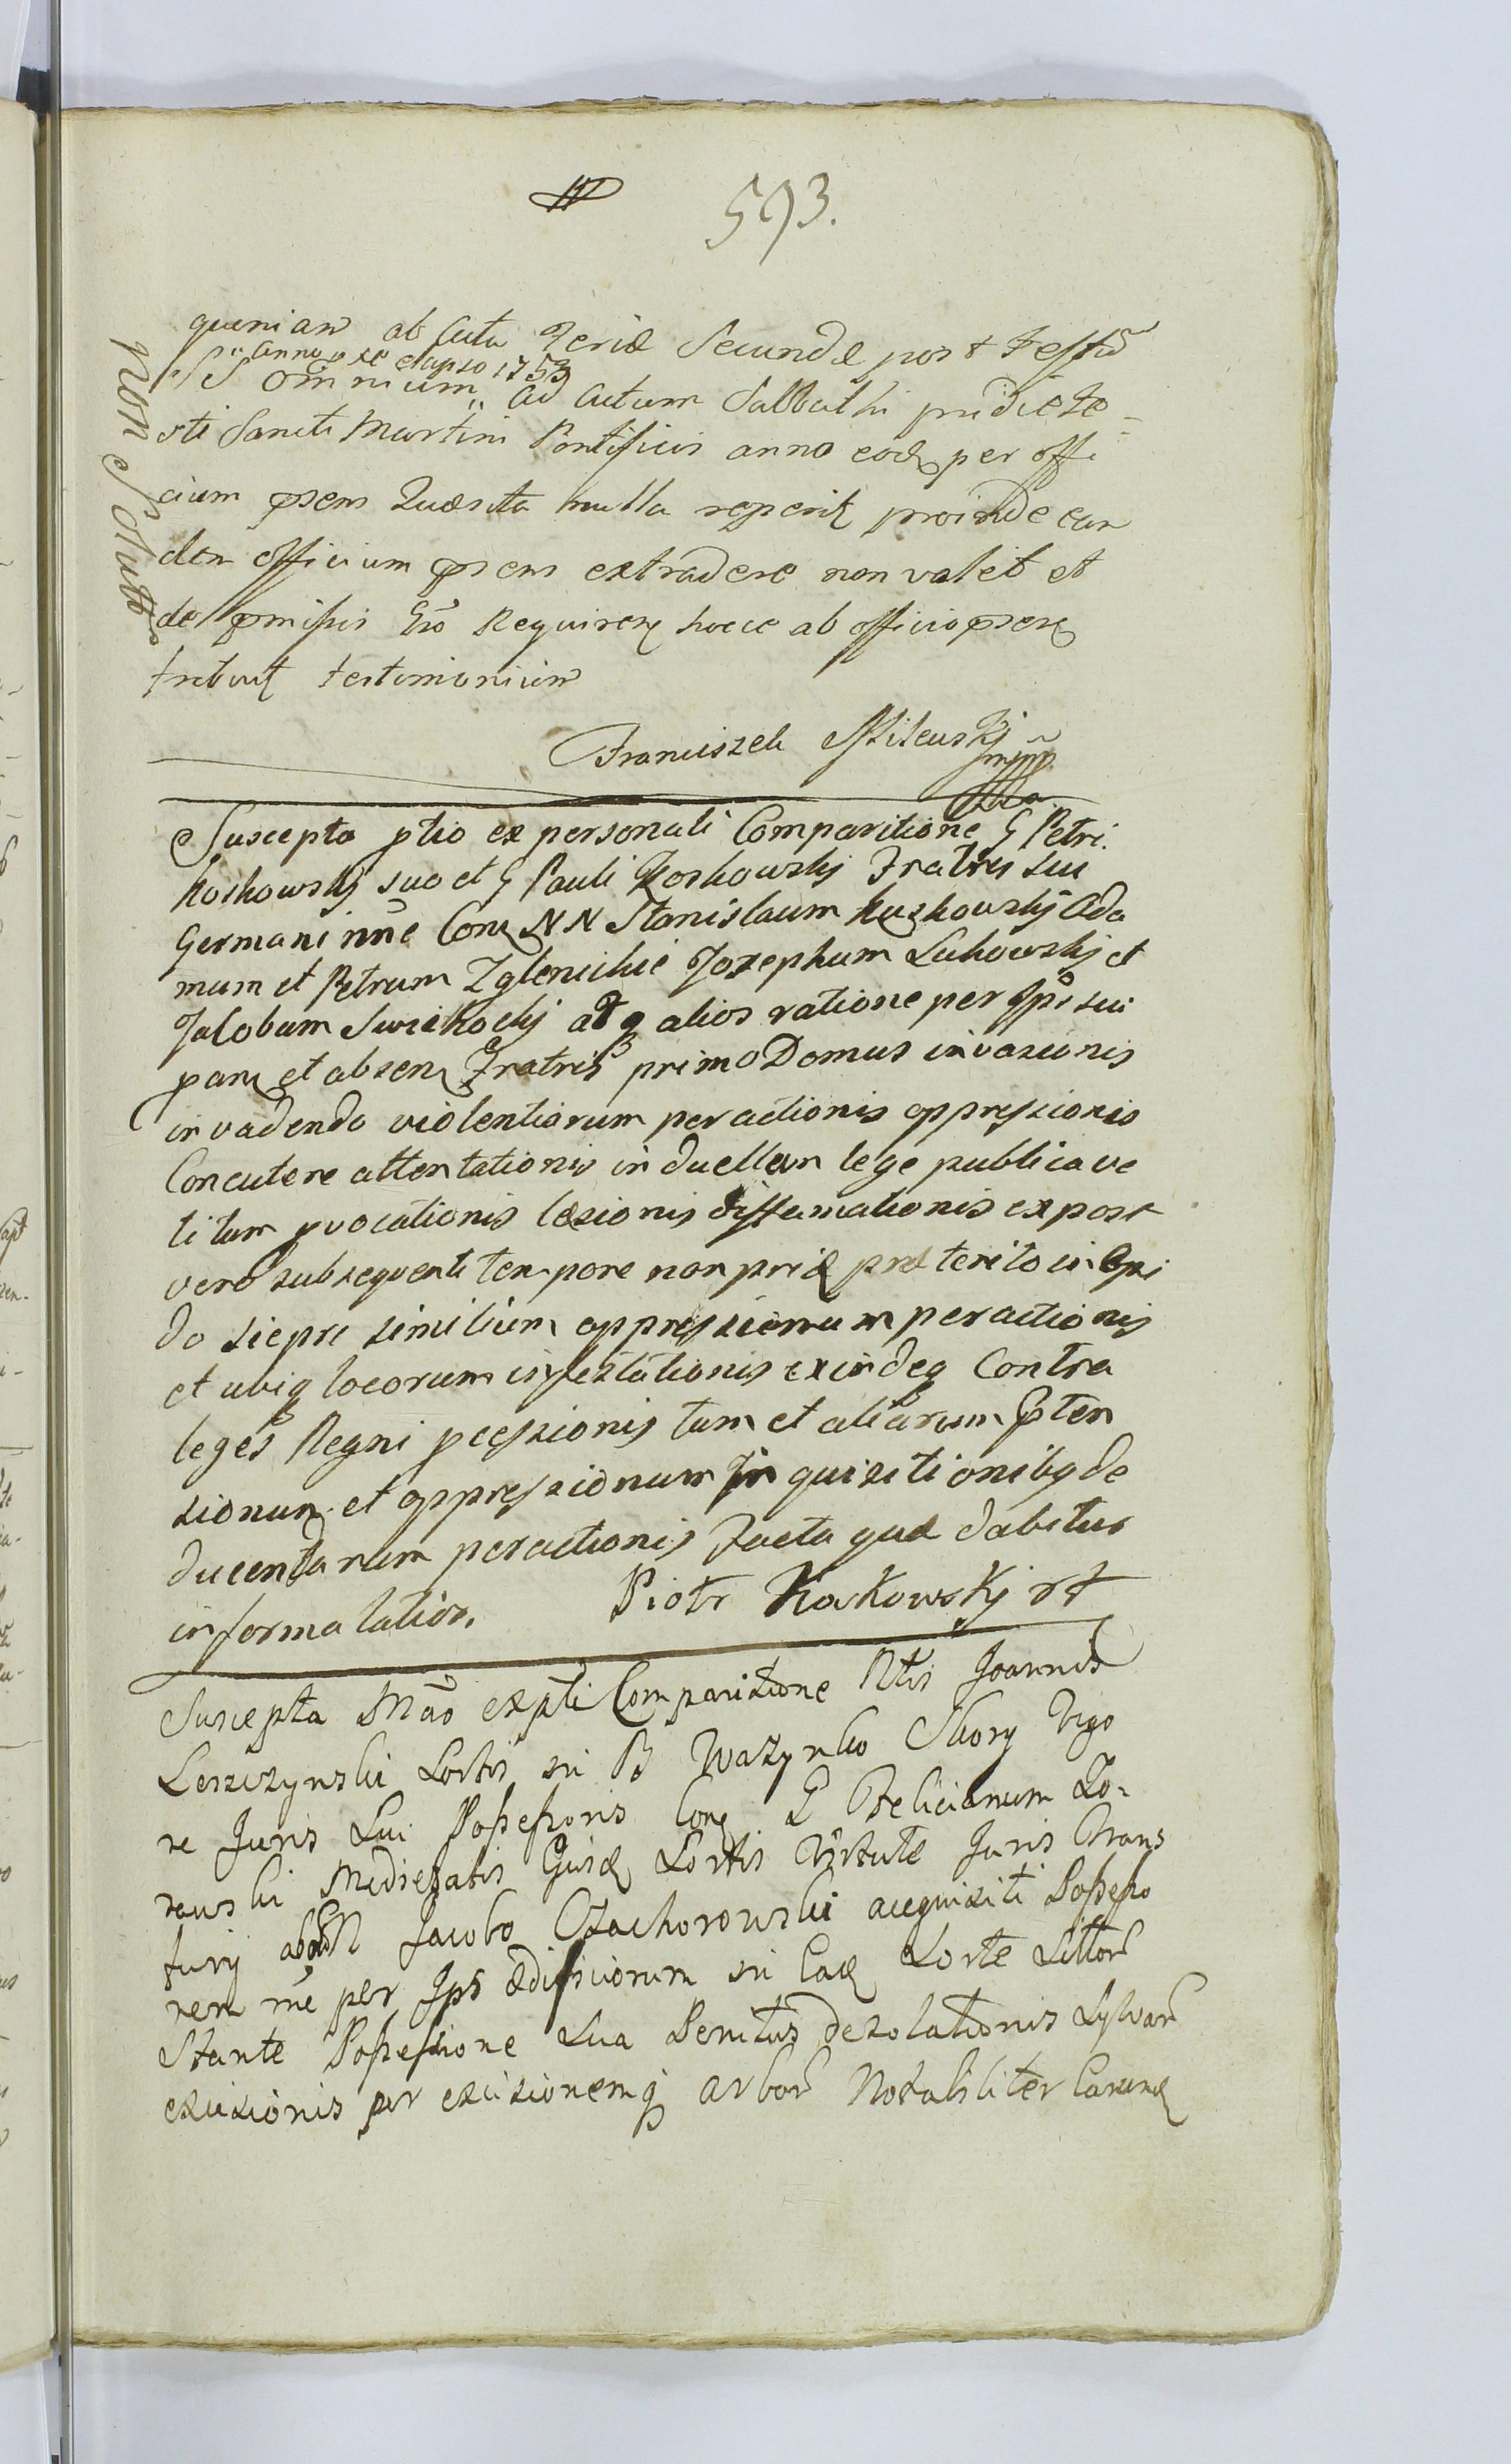 593.
quoniam ab Acta Feriæ Secundæ post Festũ
anno elapso 1753
SS omnium ad Actum Sabbathi pridie Fe-
sti Sancti Martini Pontificis anno eod per offi
cium psens Quæsita nulla reperit proinde ean
dem officium psens extradere non valet et
de pmissis Requiren hocce ab officio psen
tribuit testimonium
Non Solutto
Franciszek Milewskj
mpp
Suscepta ptio ex personali Comparitione G Petri
Koskowskj suo et G Pauli Koskowskj Fratris sui
Germani nne Con NN Stanislaum Kuzkowskj Ada
mum et Petrum Zglenickie Jozephum Lukowskj et
Jakobum Swiekockj atq alios ratione per Ipos sui
paris et absen Fratris primo Domus invazionis
invadendo violentiarum peractionis oppressionis
Concutere attentationis in duellum lege publica ve
titum pvocationis læsionis diffamationis expost
vero subsequenti tempore non prid præterito in Opi
do Siepri similium oppressionum peractionis
et ubiq locorum infestationis exindeq Contra
leges Regni pcessionis tum et aliarum Pten
sionum et oppressionum Inquisitionibq de
ducendarum peractionis Facta quæ dabitur
in forma latior. Piotr Kokowskj rt
Suscepta Mão ex pli Comparitione Ntis Joannis
Leszczynski Sortis in B Wazynko Skory Vigo
re Juris Sui Possessoris Con G Felicianum Zo-
rawski Medietatis Ejusd Sortis Virtute Juris Trans
fusi ab Jacobo Czachorowski acquisiti Possesso
rem rne per Ips ædificiorum in Ead Sorte Littor
Stante Possessione Sua Penitus dezolationis Sylvar
excisionis per excisionemq arbor Notabiliter Causand